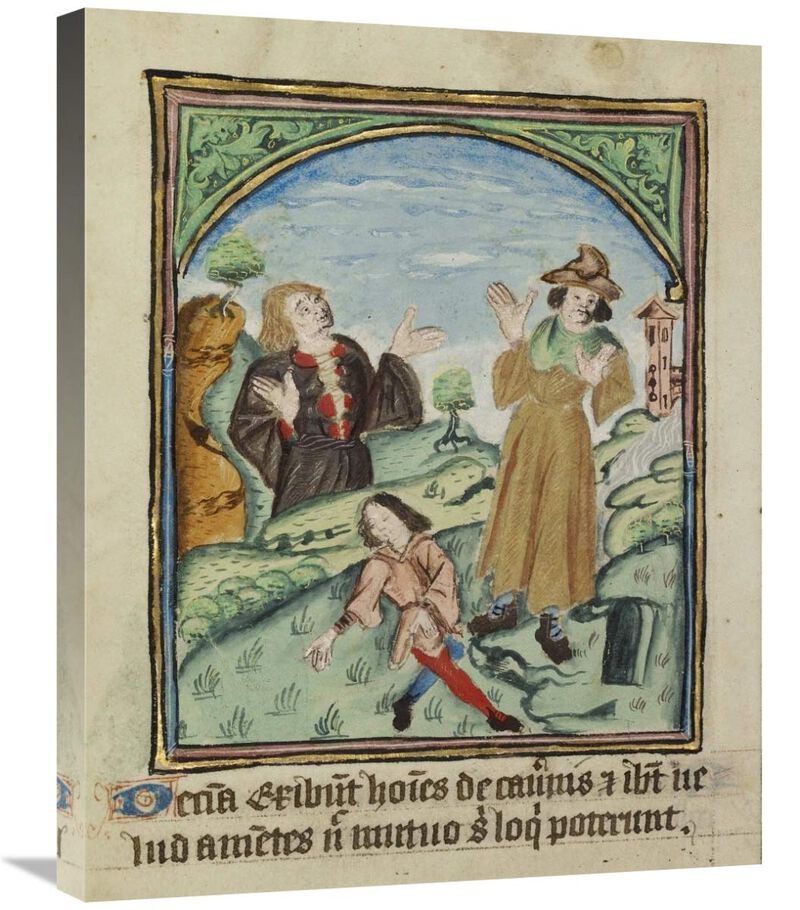 Decīa Exibūt hoīes de cau̾nis ⁊ ibn̄t ue
lud amētes n̄ mutuo s̾ loq̾ poterunt.